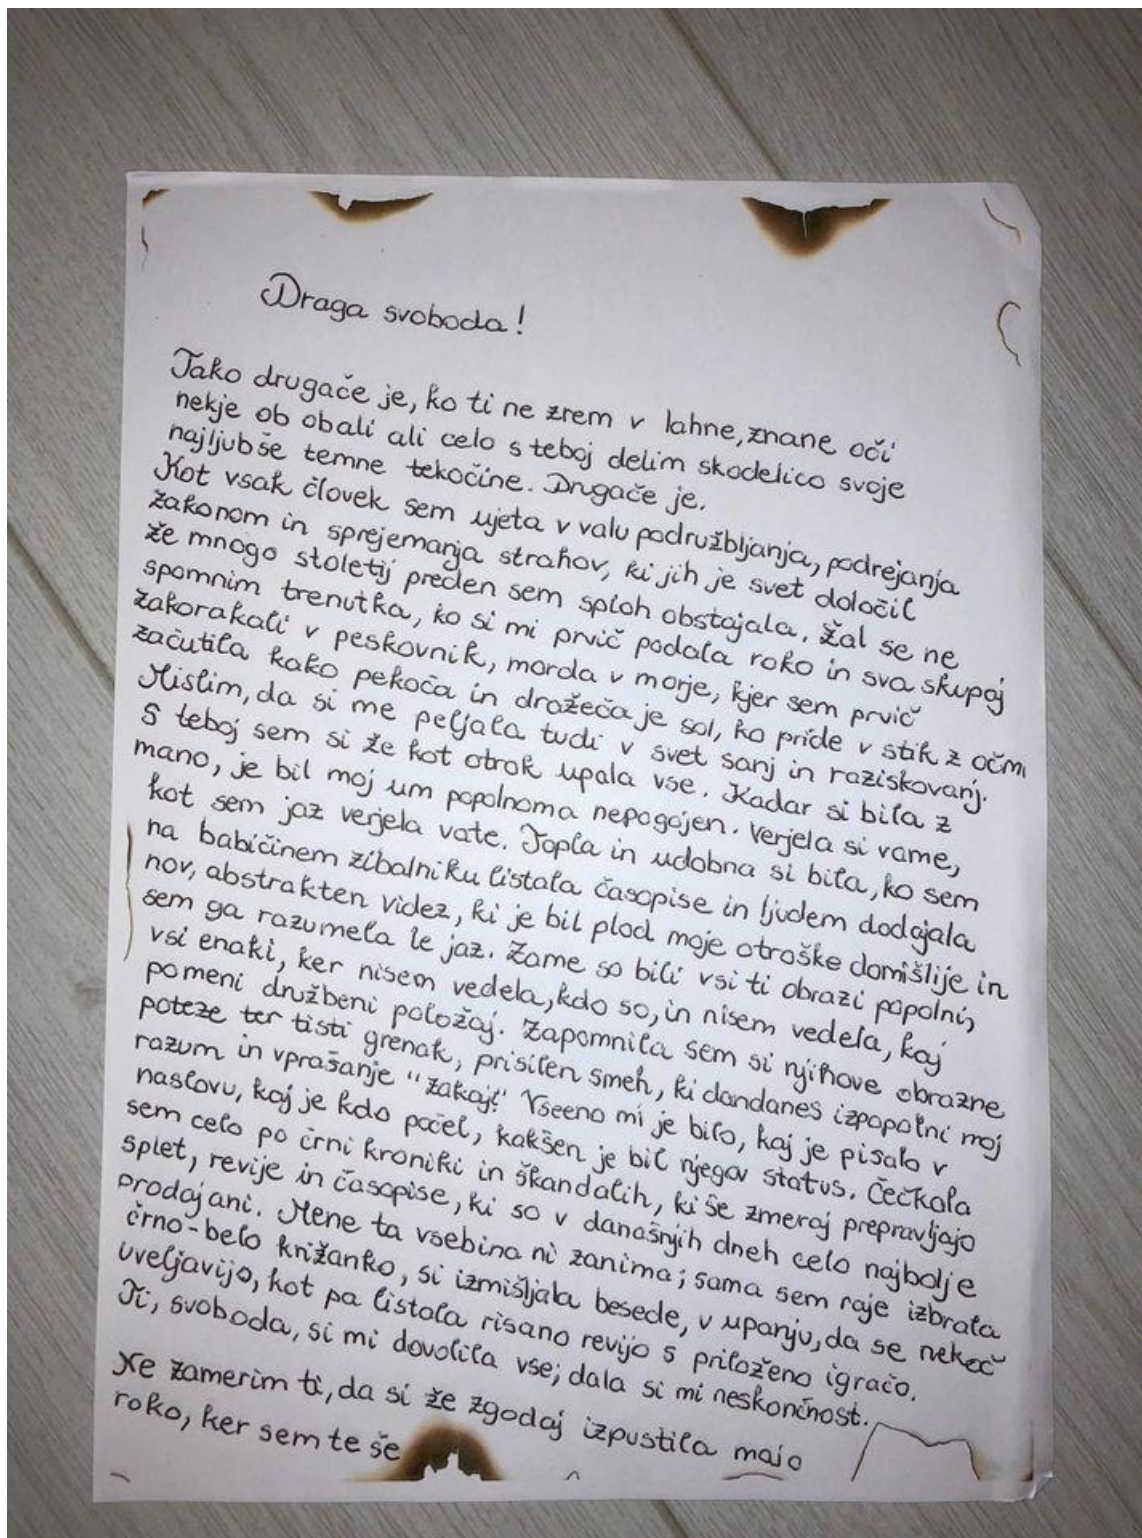 Draga svoboda!
Tako drugače je, ko ti ne zrem v lahne, znane oči
nekje ob obali ali celo s teboj delim skodelico svoje
najljubše temne tekočine. Drugače je.
Kot vsak človek sem ujeta v valu podružbljanja, podrejanja
zakonom in sprejemanja strahov, ki jih je svet določil
že mnogo stoletij preden sem sploh obstajala. Žal se ne
spomnim trenutka, ko si mi prvič podala roko in sva skupaj
zakorakali v peskovnik, morda v morje, kjer sem prvič
začutila kako pekoča in dražeča je sol, ko pride v stik z očmi
Mislim, da si me peljala tudi v svet sanj in raziskovanj.
S teboj sem si že kot otrok upala vse. Kadar si bila z
mano, je bil moj um popolnoma nepogojen. Verjela si vame,
kot sem jaz verjela vate. Topla in udobna si bila, ko sem
na babičinem zibalniku listala časopise in ljudem dodajala
nov, abstrakten videz, ki je bil plod moje otroške domišlije in
sem ga razumela le jaz. Zame so bili vsi ti obrazi popolni,
vsi enaki, ker nisem vedela, kdo so, in nisem vedela, kaj
pomeni družbeni položaj. Zapomnila sem si njihove obrazne
poteze ter tisti grenak, prisilen smeh, ki dandanes izpopolni moj
razum in vprašanje "zakaj?" Vseeno mi je bilo, kaj je pisalo v
naslovu, kaj je kdo počel, kakšen je bil njegov status. Čečkala
sem celo po črni kroniki in škandalih, ki še zmeraj prepravljajo
splet, revije in časopise, ki so v današnjih dneh celo najbolje
prodajani. Mene ta vsebina ni zanima; sama sem raje izbrala
črno-belo križanko, si izmišljala besede, v upanju, da se nekoč
uveljavijo, kot pa listala risano revijo s priloženo igračo.
Ti, svoboda, si mi dovolila vse; dala si mi neskončnost.
Ne zamerim ti, da si že zgodaj izpustila majo
roko, ker sem te še